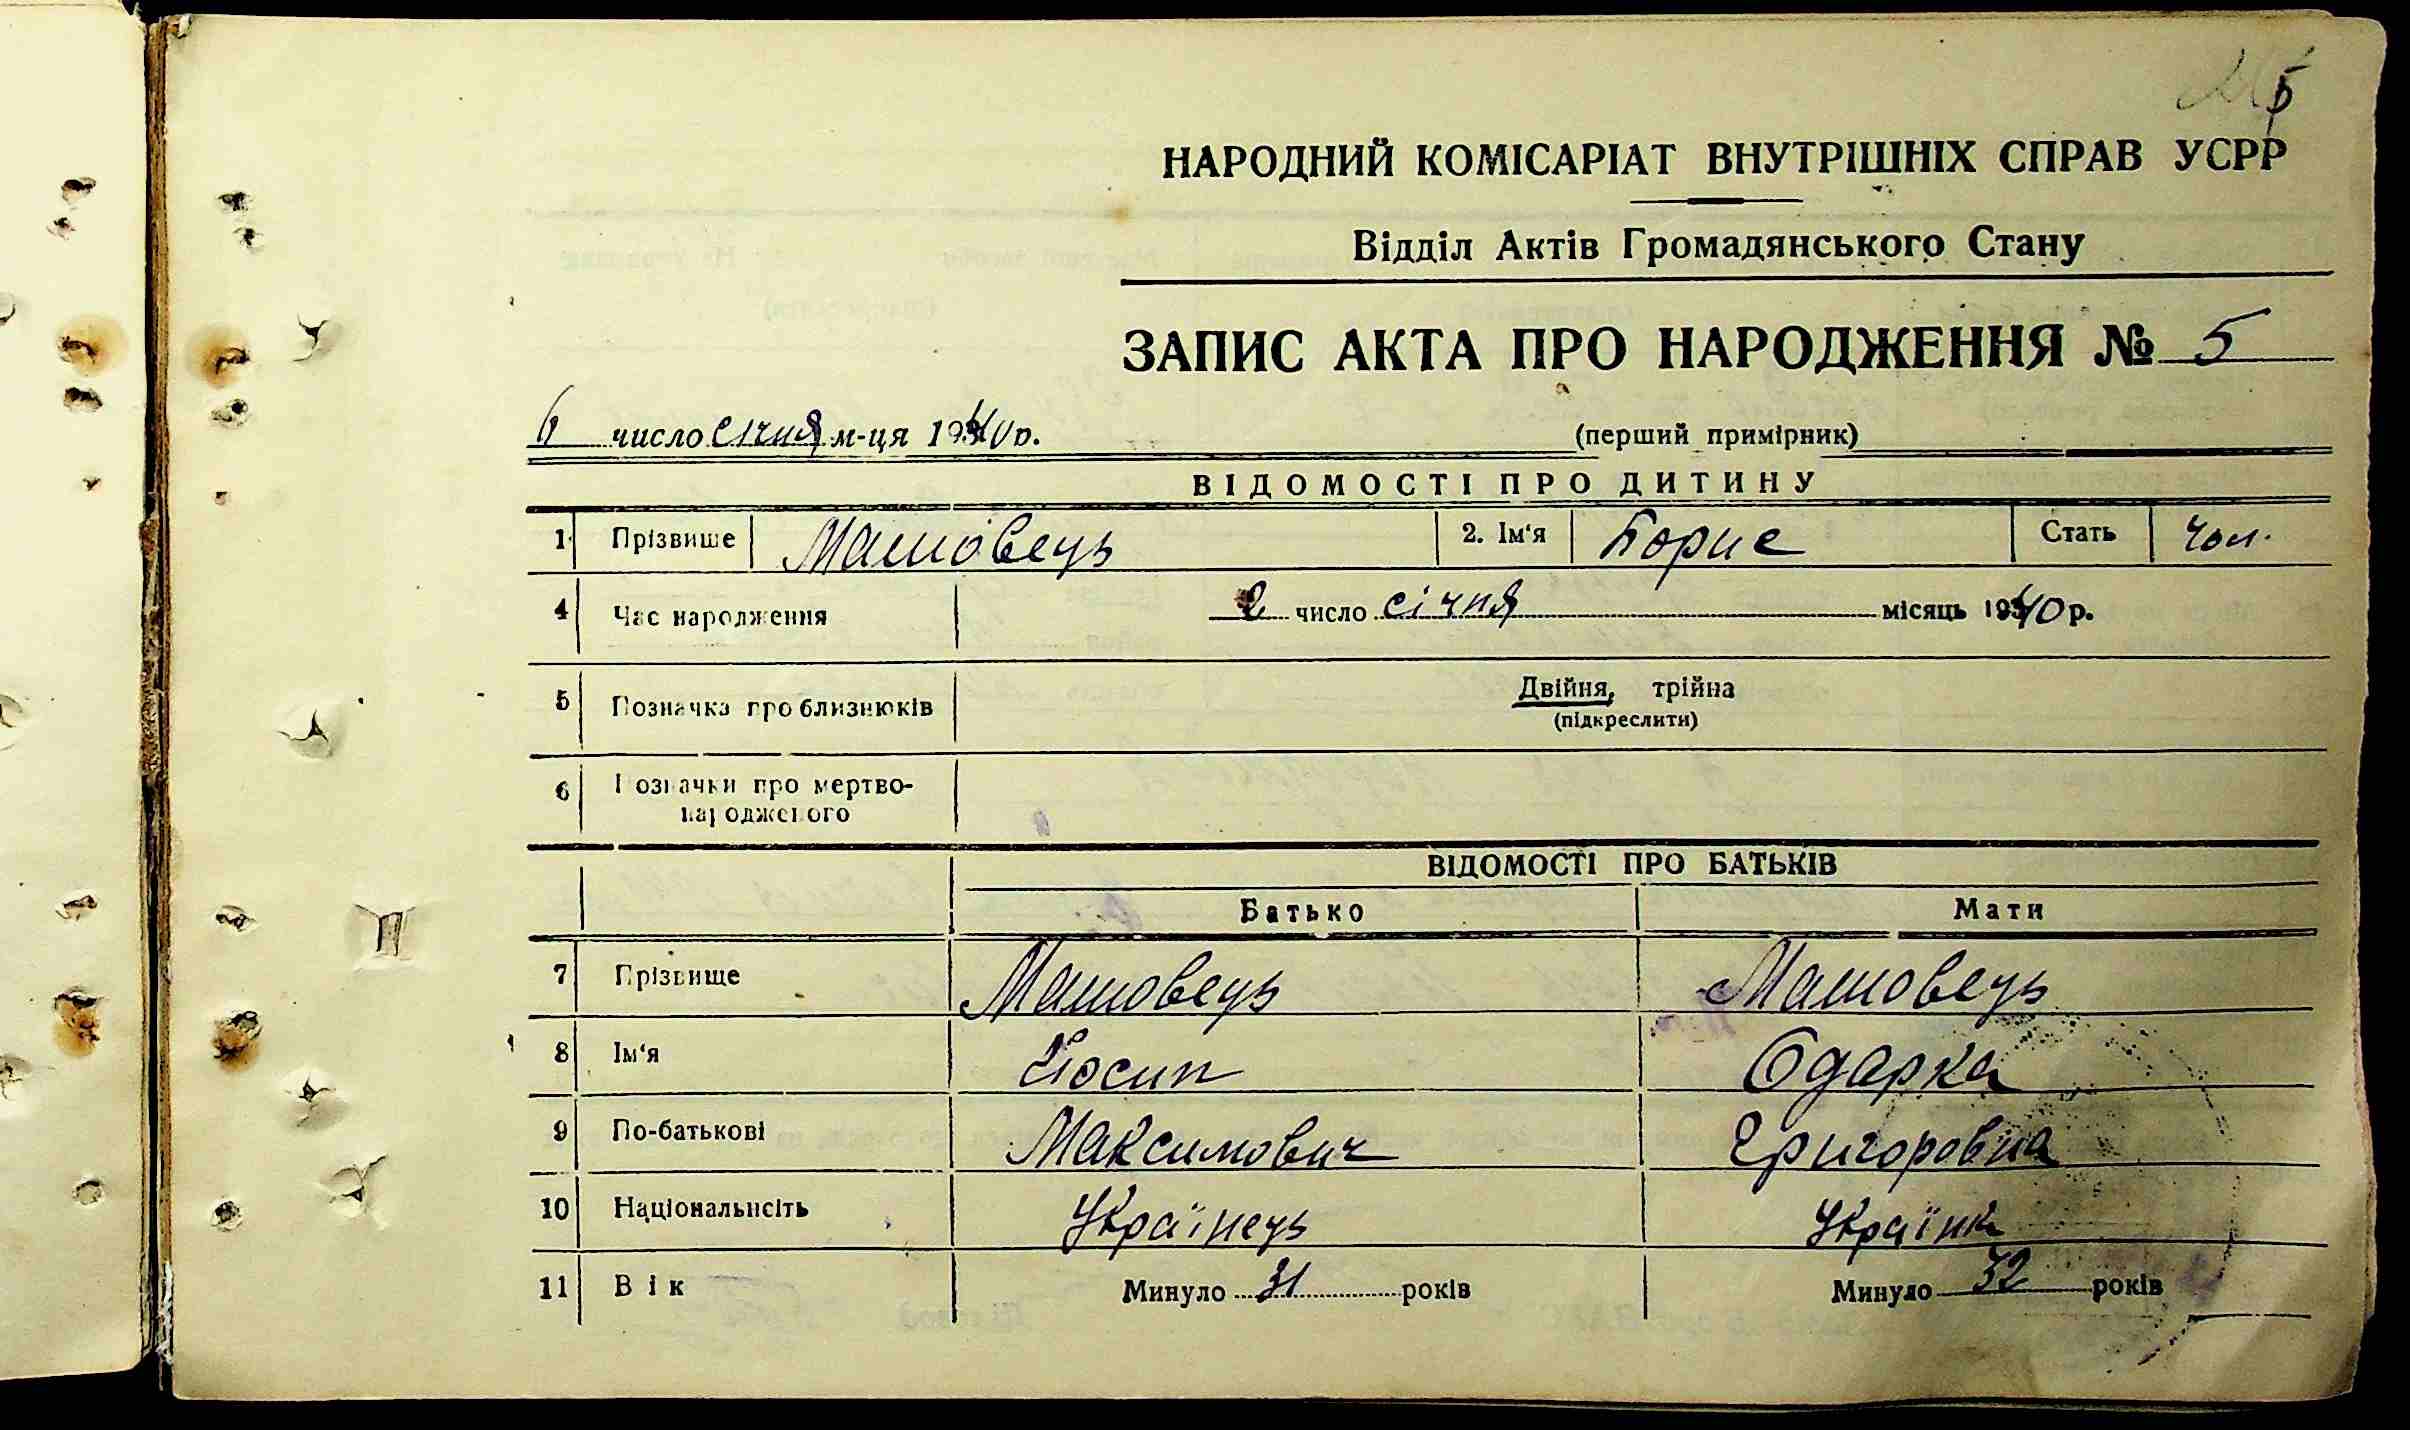 НАРОДНИЙ КОМІСАРІАТ ВНУТРІШНІХ СПРАВ УСРР
Відділ Актів Громадянського Стану
ЗАПИС АКТА ПРО НАРОДЖЕННЯ № 5
6 число січня м-ця 1940 р.
(перший примірник)
ВІДОМОСТІ ПРО ДИТИНУ
1 Прізвище Машовець 2. Ім'я Борис Стать чол.
4 Час народження 2 число січня місяць 1940 р.
5 Позначка про близнюків Двійня, трійна
(підкреслити)
6 Позначки про мертво-
народженого
ВІДОМОСТІ ПРО БАТЬКІВ
Батько Мати
7 Прізвище Машовець Машовець
8 Ім'я Йосип Одарка
9 По-батькові Максимович Григоровна
10 Національність Українець Українк
11 Вік Минуло 31 років Минуло 32 років